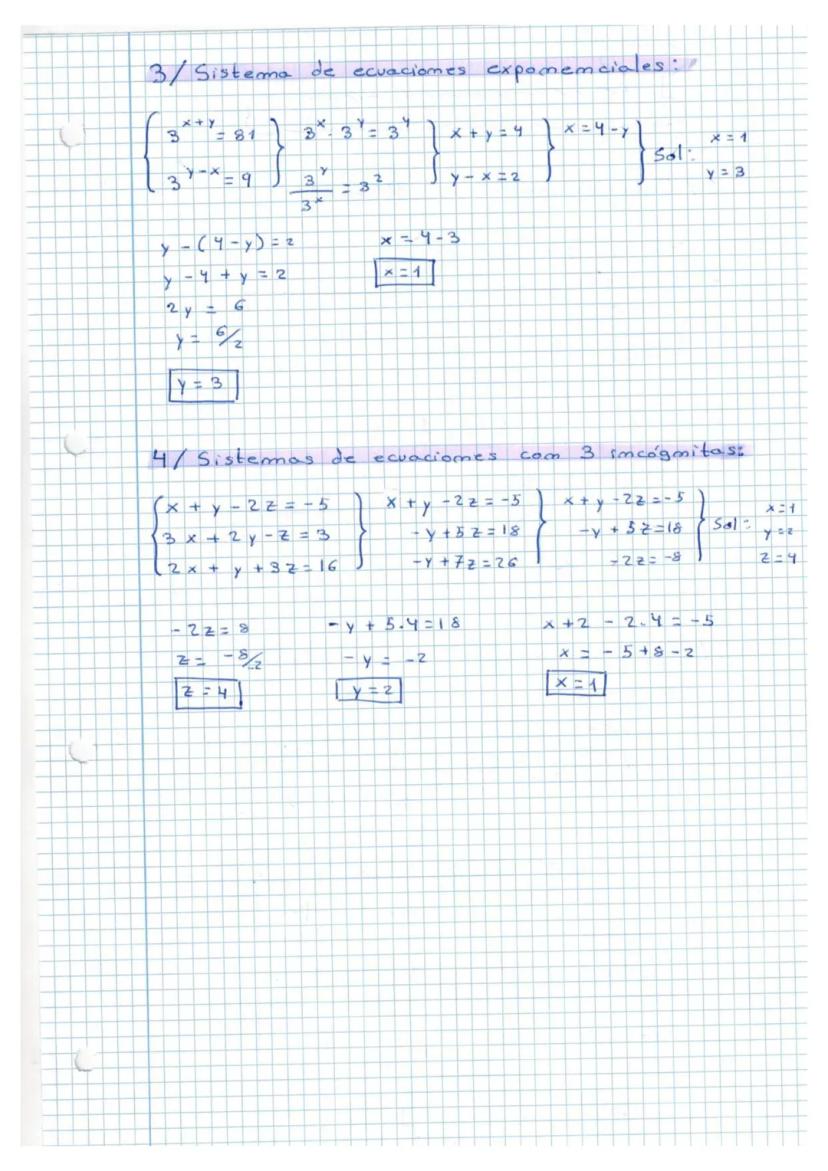 3/ Sistema de ecuaciones exponenciales:
3^(x+y) = 81 } 3^x · 3^y = 3^4 } x + y = 4 } x = 4 - y } Sol: x = 1
3^(y-x) = 9 } 3^y/3^x = 3^2 } y - x = 2 } y = 3
y - (4 - y) = 2 x = 4 - 3
y - 4 + y = 2 x = 1
2y = 6
y = 6/2
y = 3
4/ Sistemas de ecuaciones con 3 incógnitas:
x + y - 2z = -5 } x + y - 2z = -5 } x + y - 2z = -5 } x = 1
3x + 2y - z = 3 } - y + 5z = 18 } - y + 5z = 18 } Sol: y = 2
2x + y + 3z = 16 } - y + 7z = 26 } - 2z = -8 } z = 4
- 2z = 8 - y + 5.4 = 18 x + 2 - 2.4 = -5
z = -8/2 - y = -2 x = - 5 + 8 - 2
z = 4 y = 2 x = 1